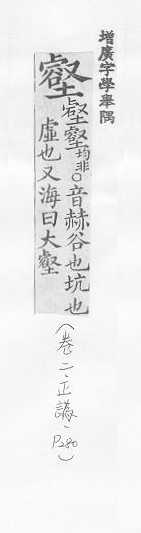 增廣字學舉隅
壑
均非○音赫谷也坑也
虛也又海曰大壑
(卷二、正譌、P280)